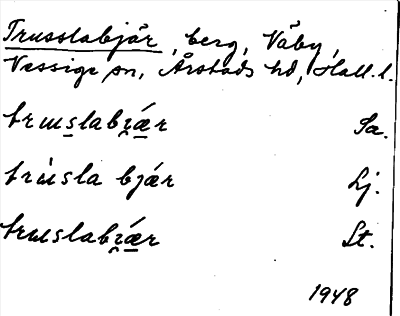 Trusslabjär, berg, Väby,
Vessige sn, Årstads hd, Hall. l.
truslabjǽr Sæ.
trùsla bjǽr Lj.
truslabjǽr St.
1948